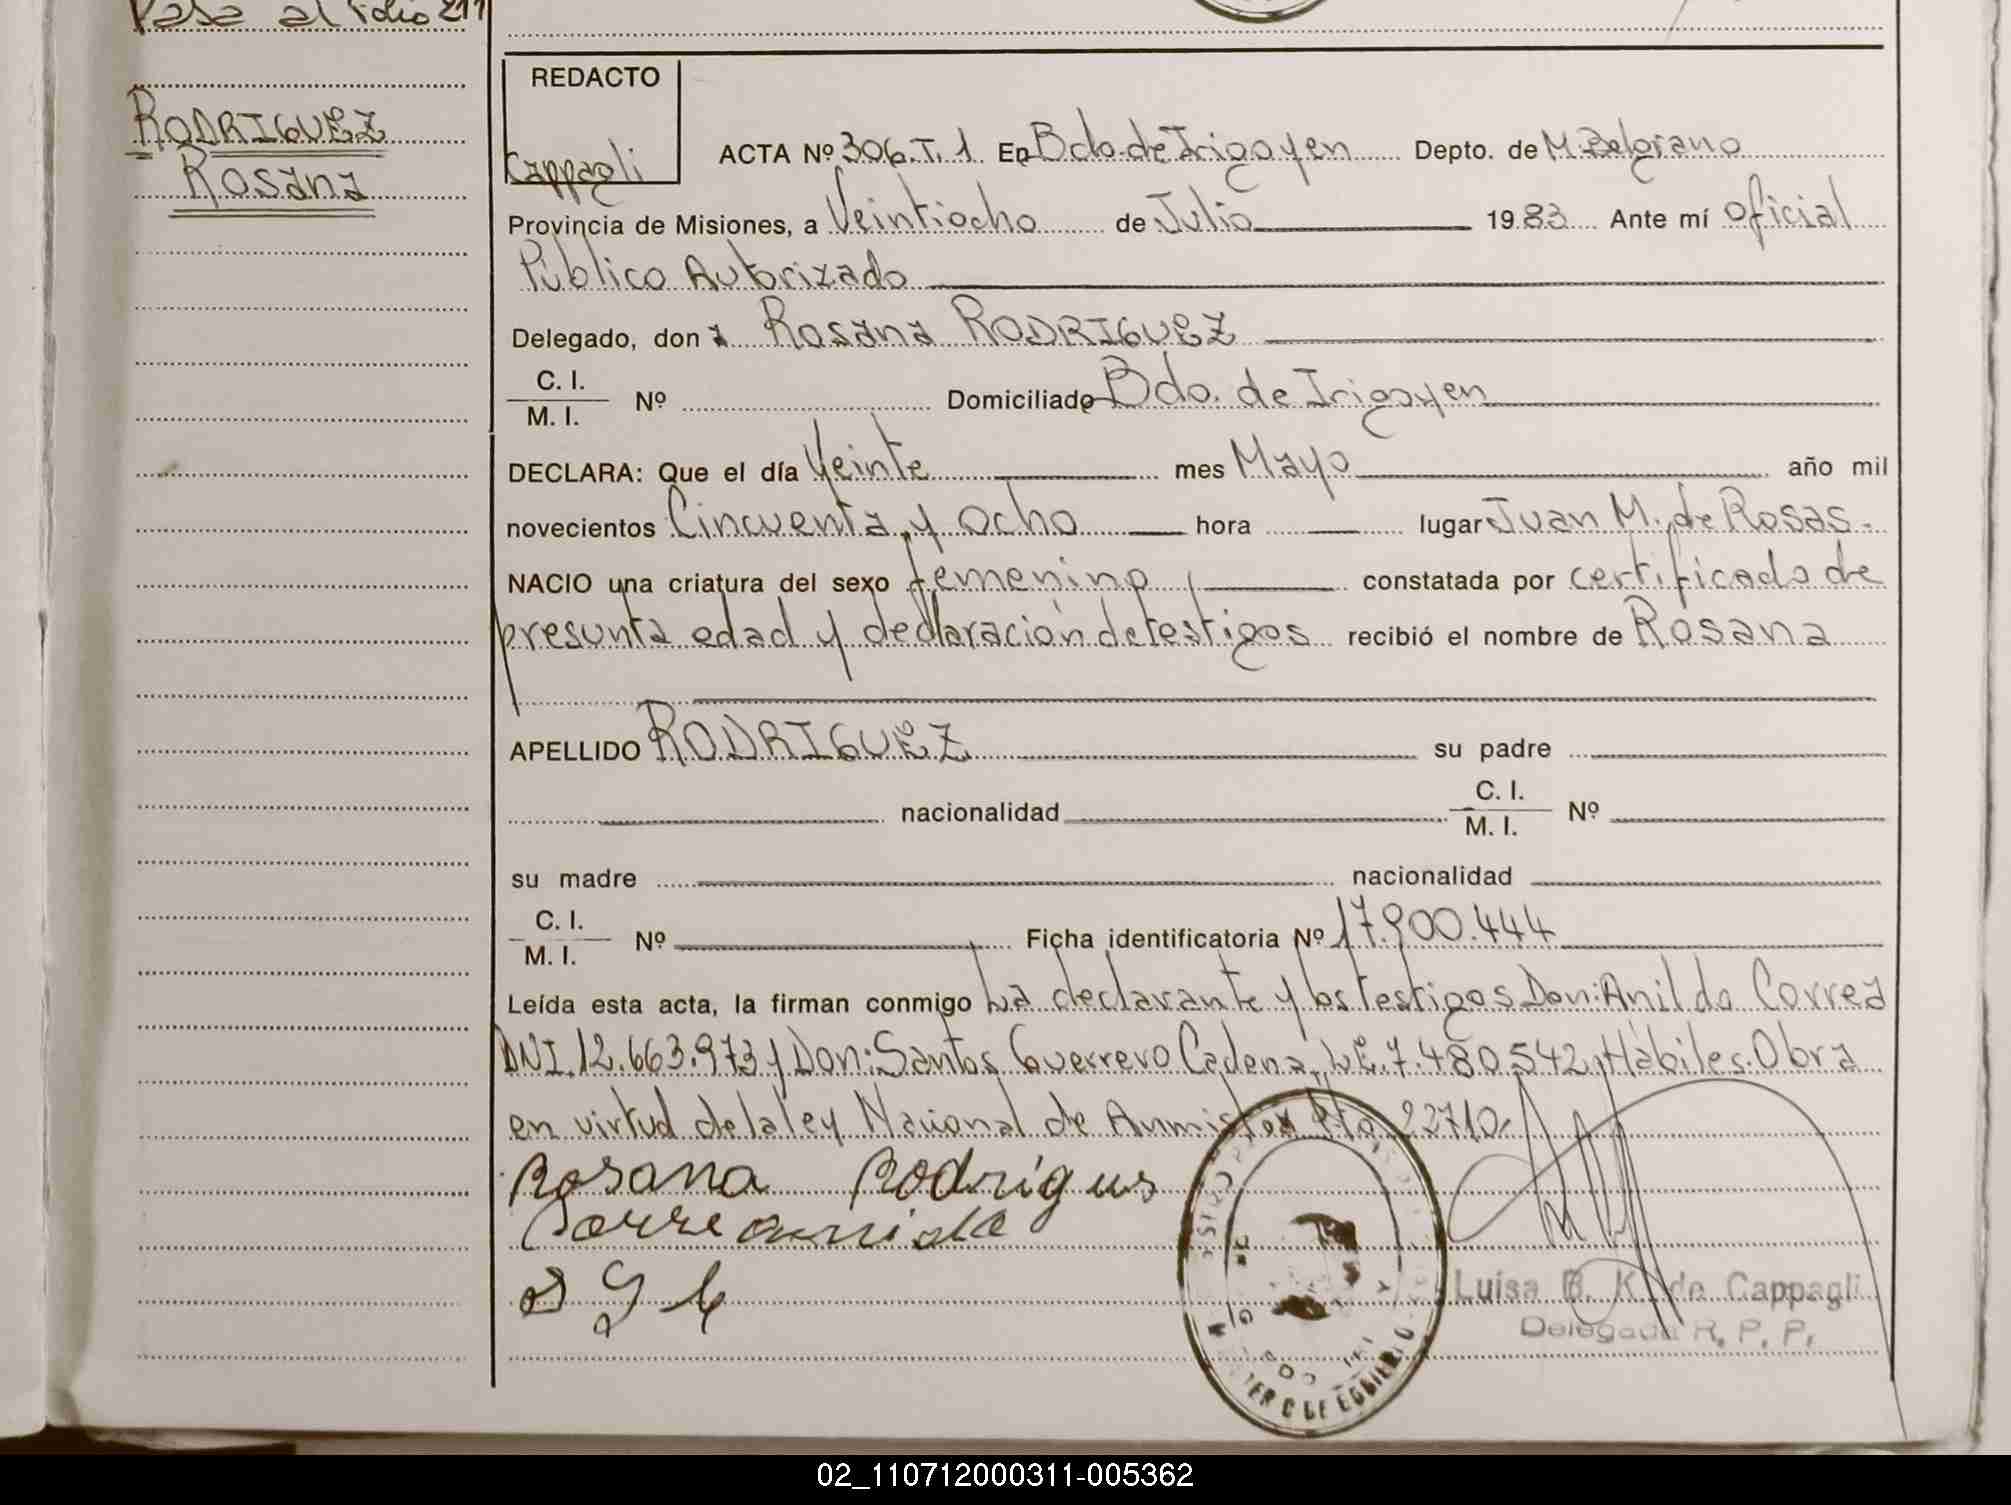 Pasa al folio 211
RODRIGUEZ
Rosana
REDACTO
Cappagli
ACTA Nº 306.T.1 En Bdo.de Irigoyen Depto. de M.Belgrano
Provincia de Misiones, a Veintiocho de Julio 1983 Ante mí oficial
Público Autorizado
Delegado, don a Rosana RODRIGUEZ
C. I.
M. I. Nº Domiciliado Bdo. de Irigoyen
DECLARA: Que el día Veinte mes Mayo año mil
novecientos Cincuenta y ocho hora lugar Juan M. de Rosas.
NACIO una criatura del sexo femenino, constatada por certificado de
presunta edad y declaración de testigos recibió el nombre de Rosana
APELLIDO RODRIGUEZ su padre
nacionalidad C. I.
M. I. Nº
su madre nacionalidad
C. I.
M. I. Nº Ficha identificatoria Nº 17.900.444
Leída esta acta, la firman conmigo La declarante y los testigos Don: Anildo Correa
DNI.12.663.973 y Don: Santos Guerrero Cadena, L.E.7.480.542, Hábiles. Obra
en virtud de la ley Nacional de Anmistia Nº 22710.
Rosana Rodrigus
Correa anildo
S G C
Luisa B. K. de Cappagli
Delegada R. P. P.
DE GOBIERNO
02_110712000311-005362